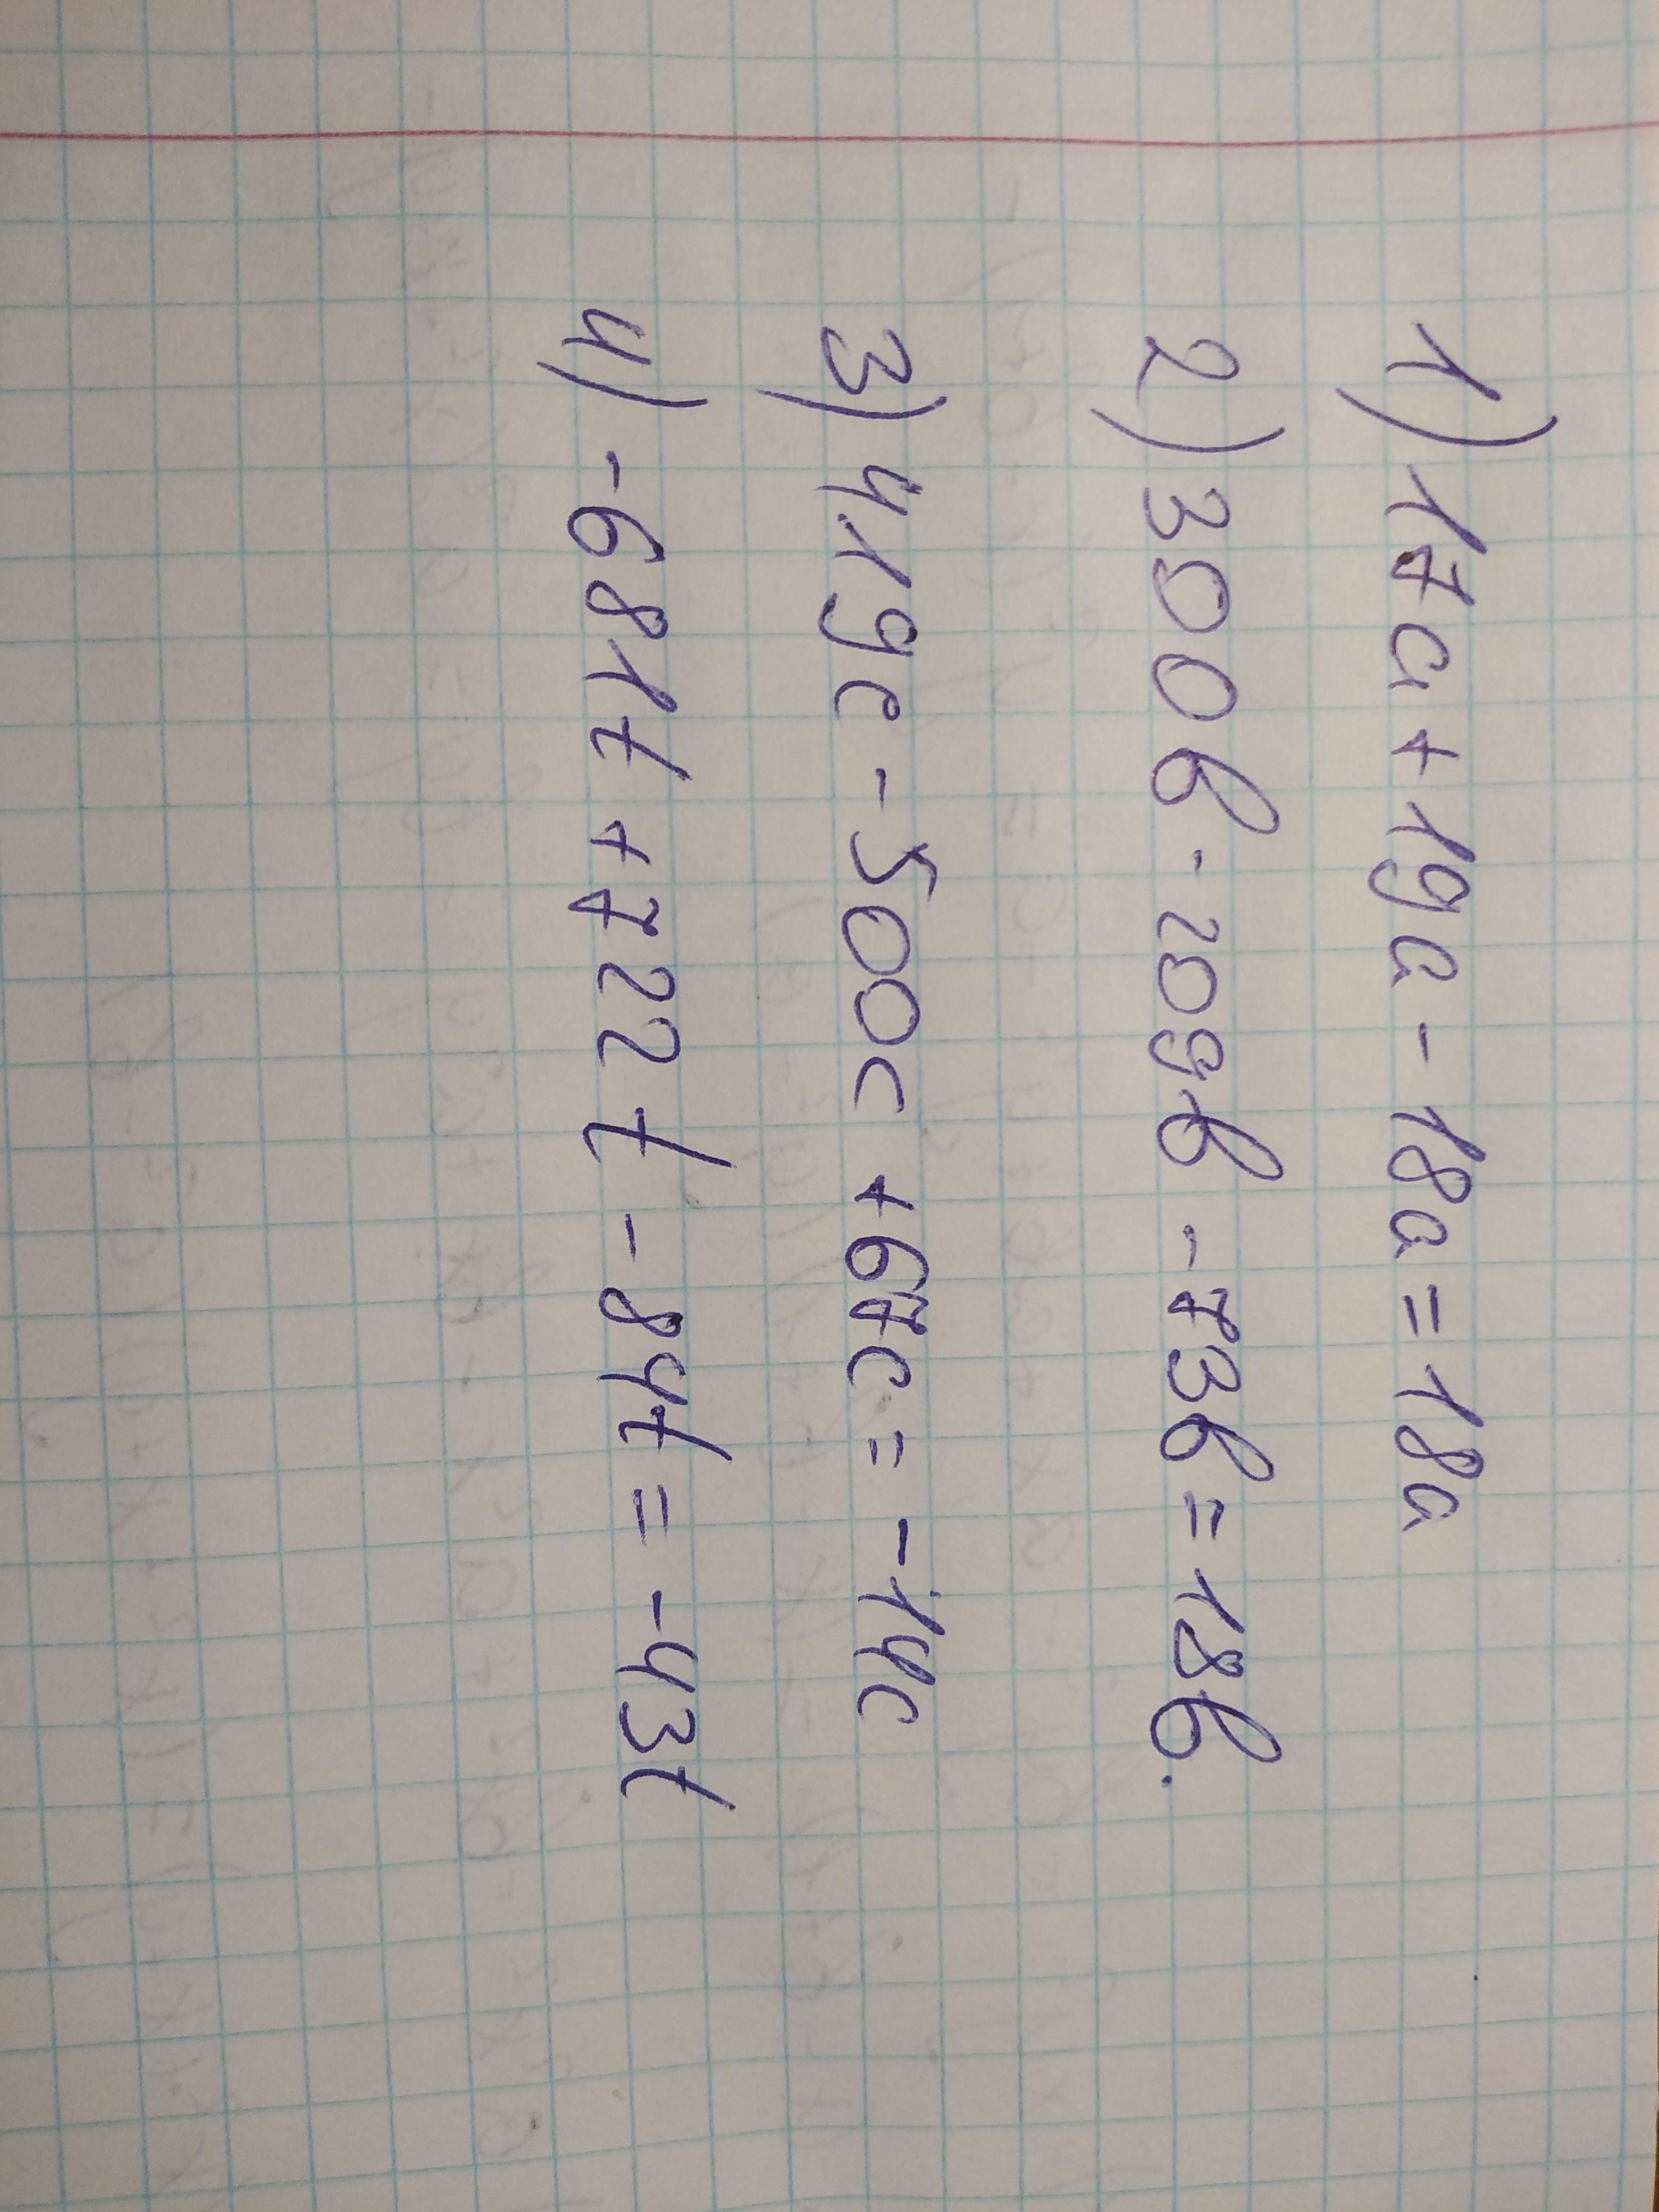 1) 17a + 19a - 18a = 18a
2) 300b - 209b - 73b = 18b.
3) 419c - 500c + 67c = -14c
4) -681t + 722t - 84t = -43t